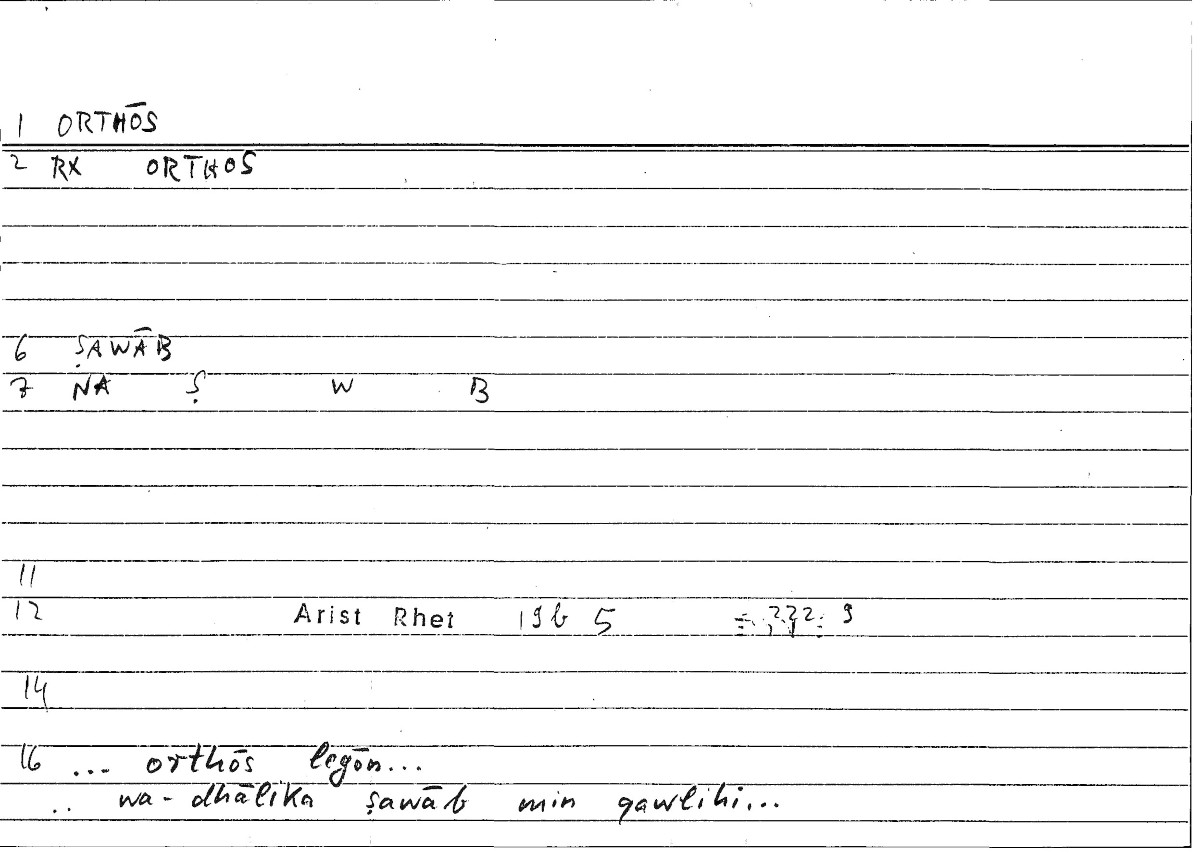 1 ORTHŌS
2 RX ORTHOS
6 ṢAWĀB
7 NA Ṣ W B
11
12 Arist Rhet 19b 5 = 222; 9
14
16 ... orthōs legōn...
.. wa-dhālika ṣawāb min qawlihi...